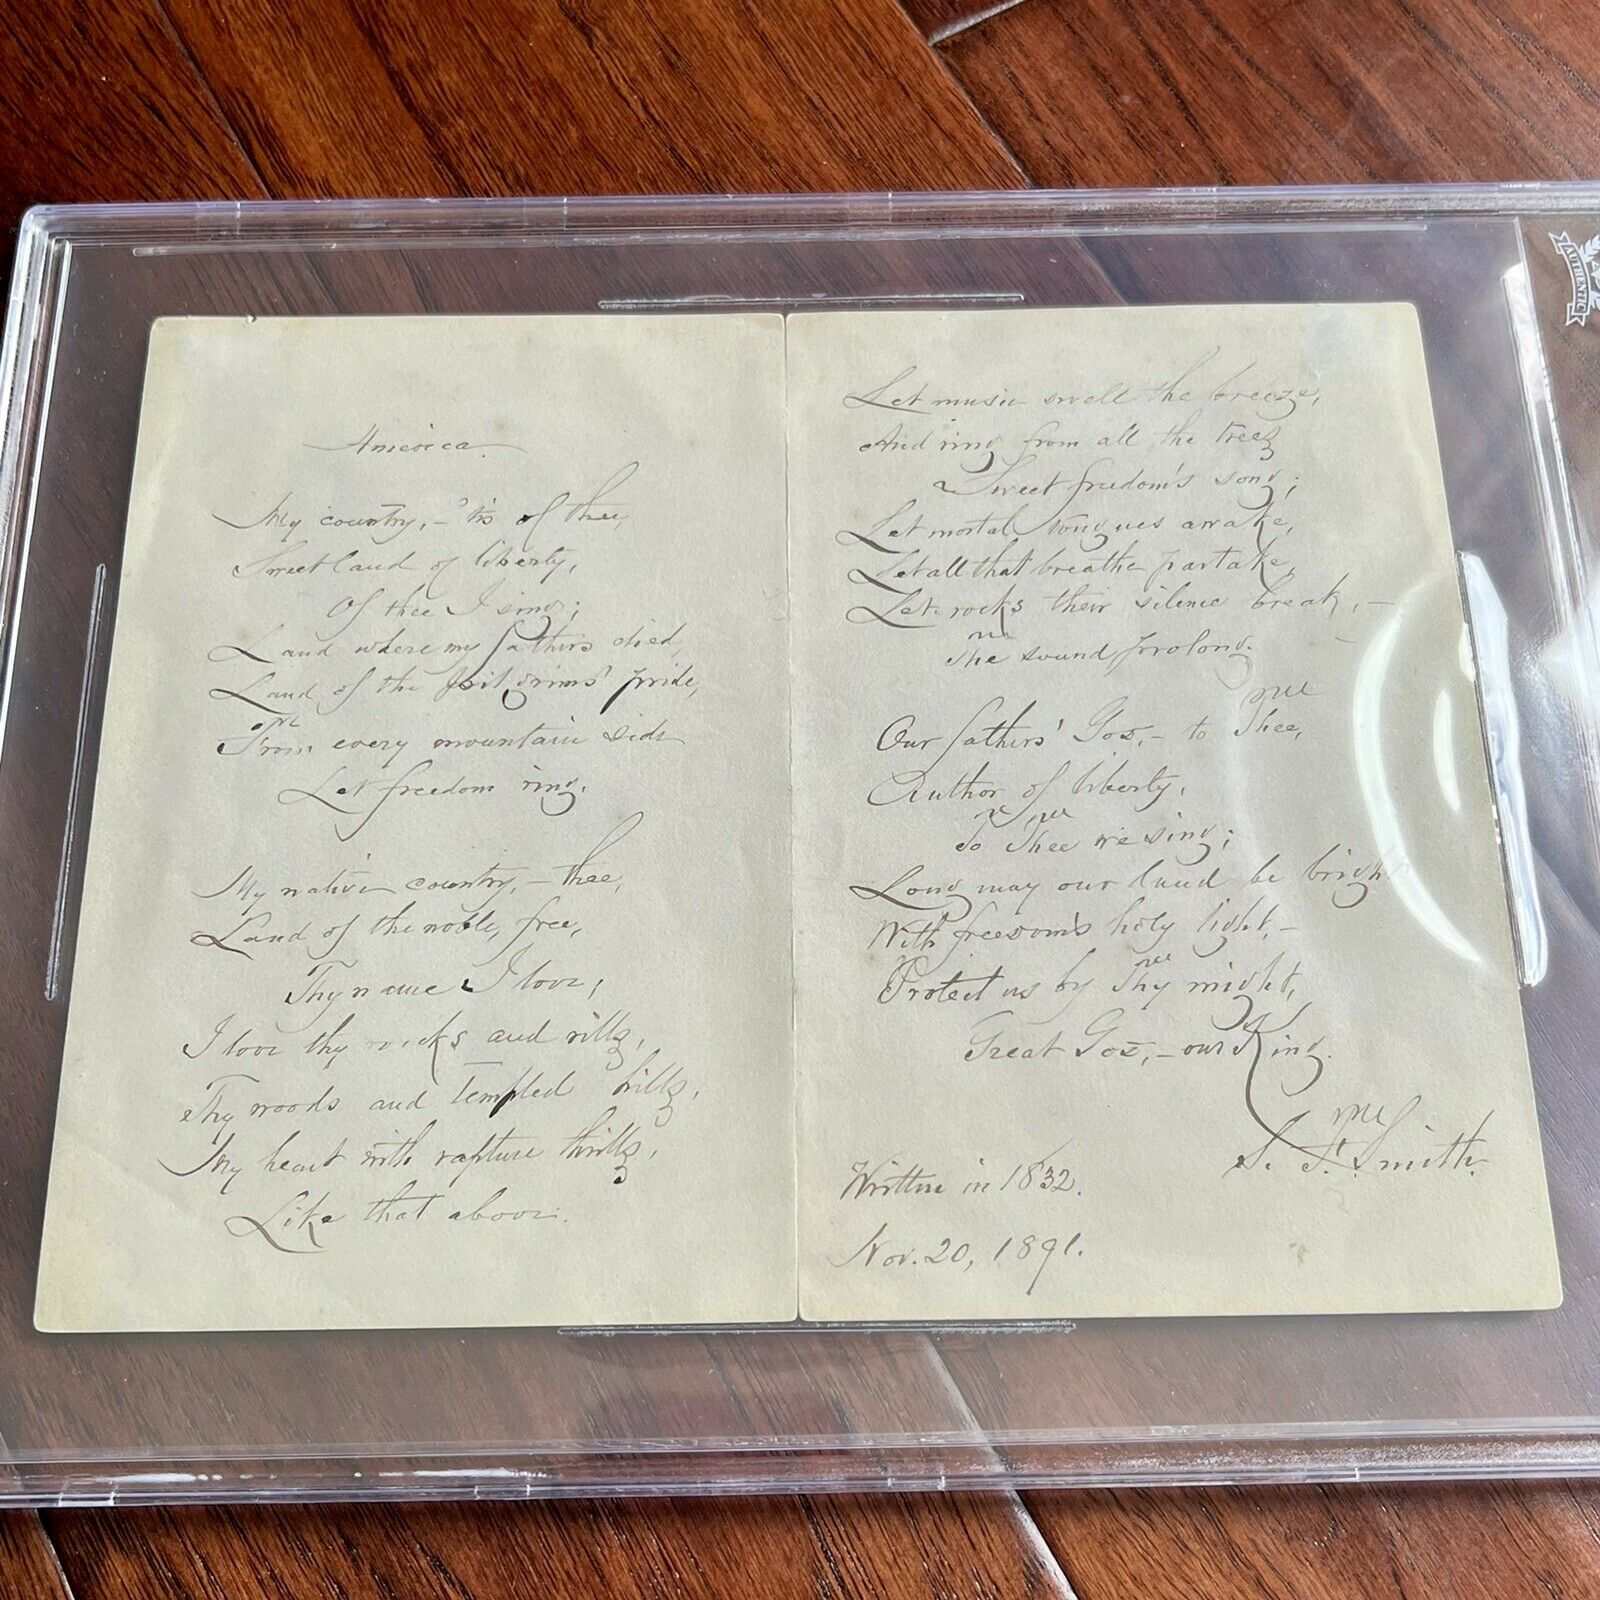 America.
My country, – 'tis of thee,
Sweet land of liberty,
Of thee I sing;
Land where my fathers died,
Land of the pilgrims' pride,
From every mountain side
Let freedom ring.
My native country, – thee,
Land of the noble, free,
Thy name I love;
I love thy rocks and rills,
Thy woods and templed hills,
My heart with rapture thrills,
Like that above.
Let music swell the breeze,
And ring from all the trees
Sweet freedom's song;
Let mortal tongues awake,
Let all that breathe partake,
Let rocks their silence break, –
The sound prolong.
Our fathers' God, – to Thee,
Author of liberty,
To Thee we sing;
Long may our land be bright
With freedom's holy light, –
Protect us by Thy might,
Great God, – our King.
S. F. Smith.
Written in 1832.
Nov. 20, 1891.
AUTHENTIC